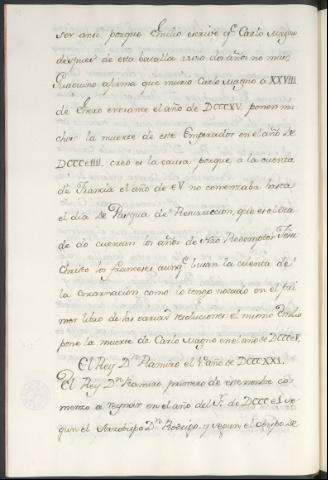 ser ansi porque Emilio escrive q̃ Carlo Magno
despues de esta batalla vivio dos años no mas,
Guaguino afirma que murio Carlo Magno a XXVIII
de Enero entrante el año de DCCCXV. ponen mu
chos la muerte de este Emperador en el año de
DCCCCIIII. creo es la causa porque a la cuenta
de Francia el año de EV no comenzaba hasta
el dia de Pasqua de Resurreccion, que es el dia
de do cuentan los años de Ñro Redemptor Jesu
Christo los Franceses aunq̃ usan la cuenta de
la Encarnacion como lo tengo notado en el pri
mer libro de las varias resoluciones el mismo Emilio
pone la muerte de Carlo Magno en el año de DCCCEV.
El Rey D.ⁿ Ramiro el 1º año de DCCCXXI.
El Rey D.ⁿ Ramiro primero de este nombre co
menzo a reynar en el año del S.ʳ de DCCCEI se
gun el Arzobispo D.ⁿ Rodrigo, y segun el Obispo de